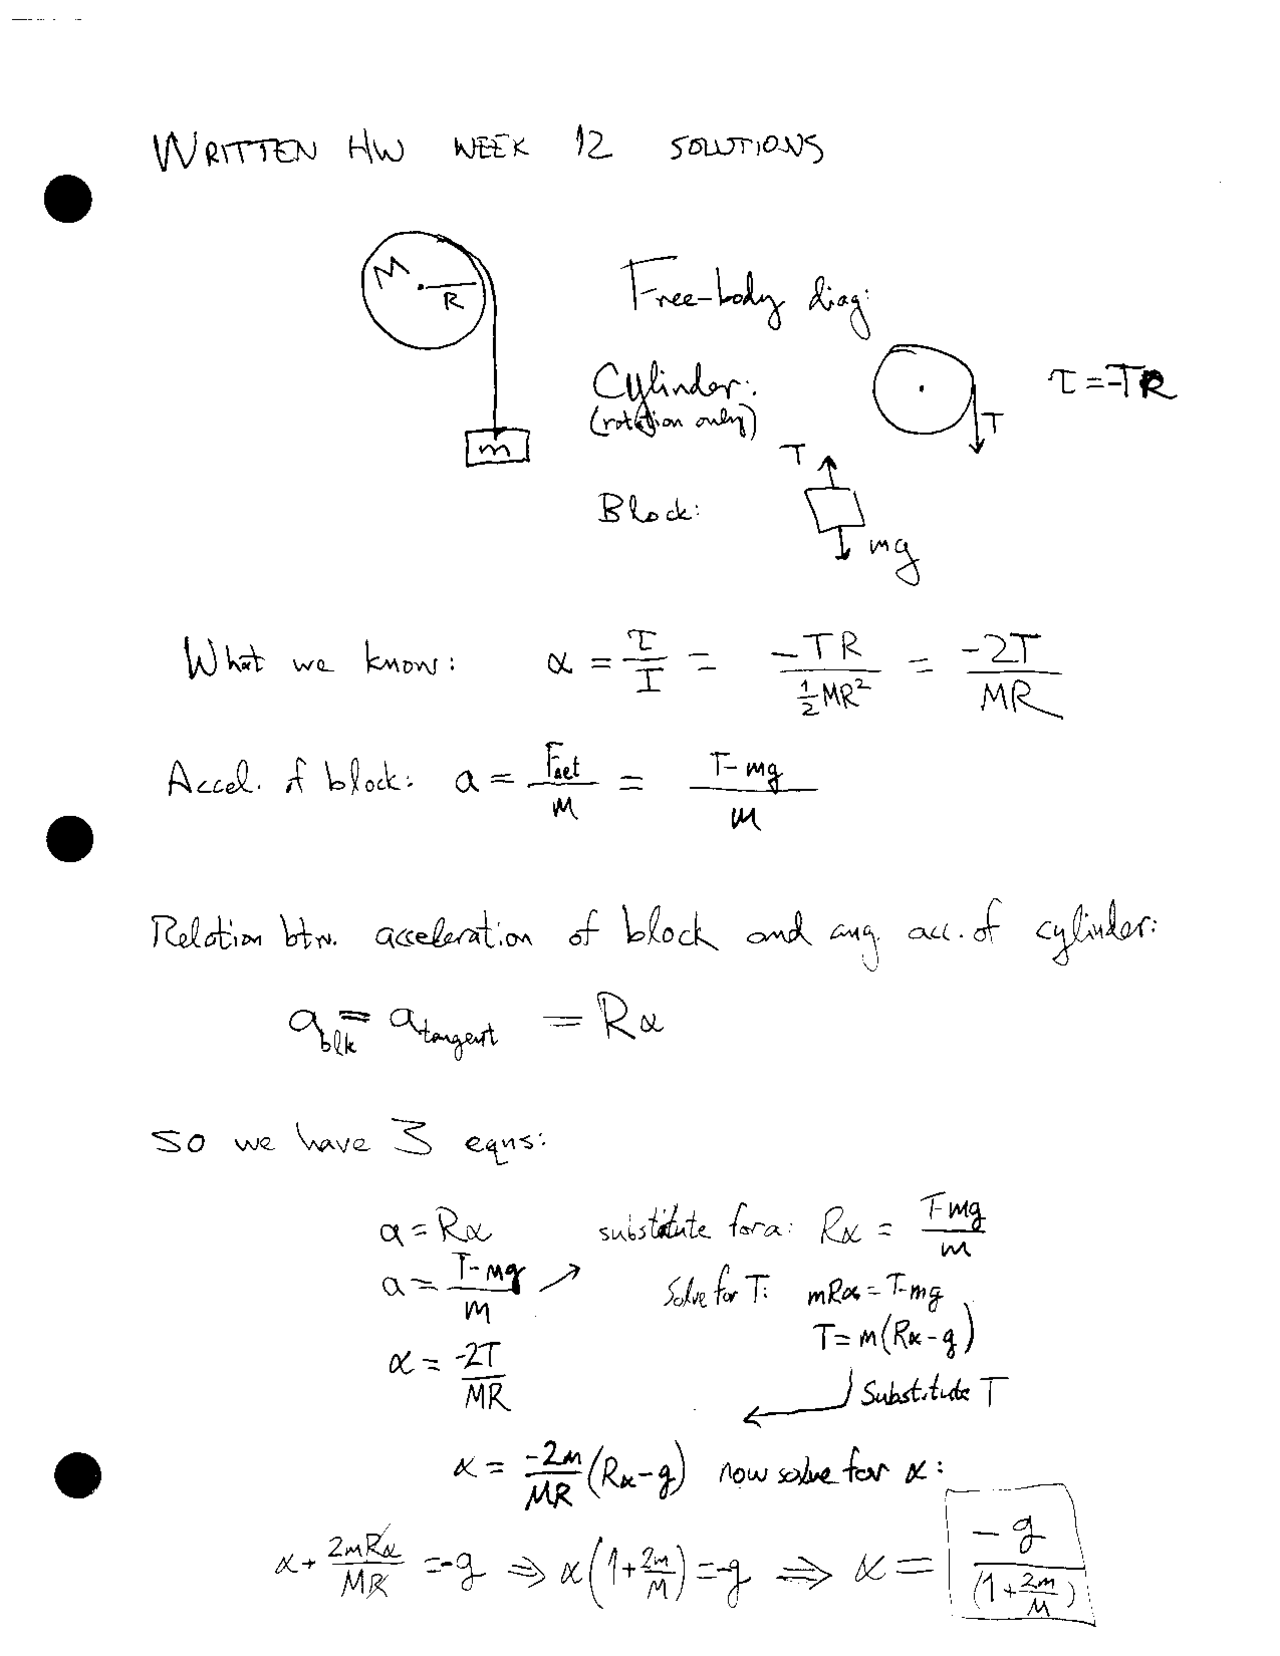 WRITTEN HW WEEK 12 SOLUTIONS
M
R
m
Free-body diag:
Cylinder:
(rotation only)
T
τ = -TR
Block:
T
mg
What we know: α = τ/I = -TR/(½MR²) = -2T/MR
Accel. of block: a = Fnet/m = T-mg/m
Relation btw. acceleration of block and ang. acc. of cylinder:
a blk = a tangent = Rα
So we have 3 eqns:
a = Rα
a = T-mg/m
α = -2T/MR
substitute for a: Rα = T-mg/m
Solve for T: mRα = T-mg
T = m(Rα-g)
Substitute T
α = -2m/MR (Rα-g) now solve for α:
α + 2mRα/MR = -g ⇒ α(1+2m/M) = -g ⇒ α = -g/(1+2m/M)